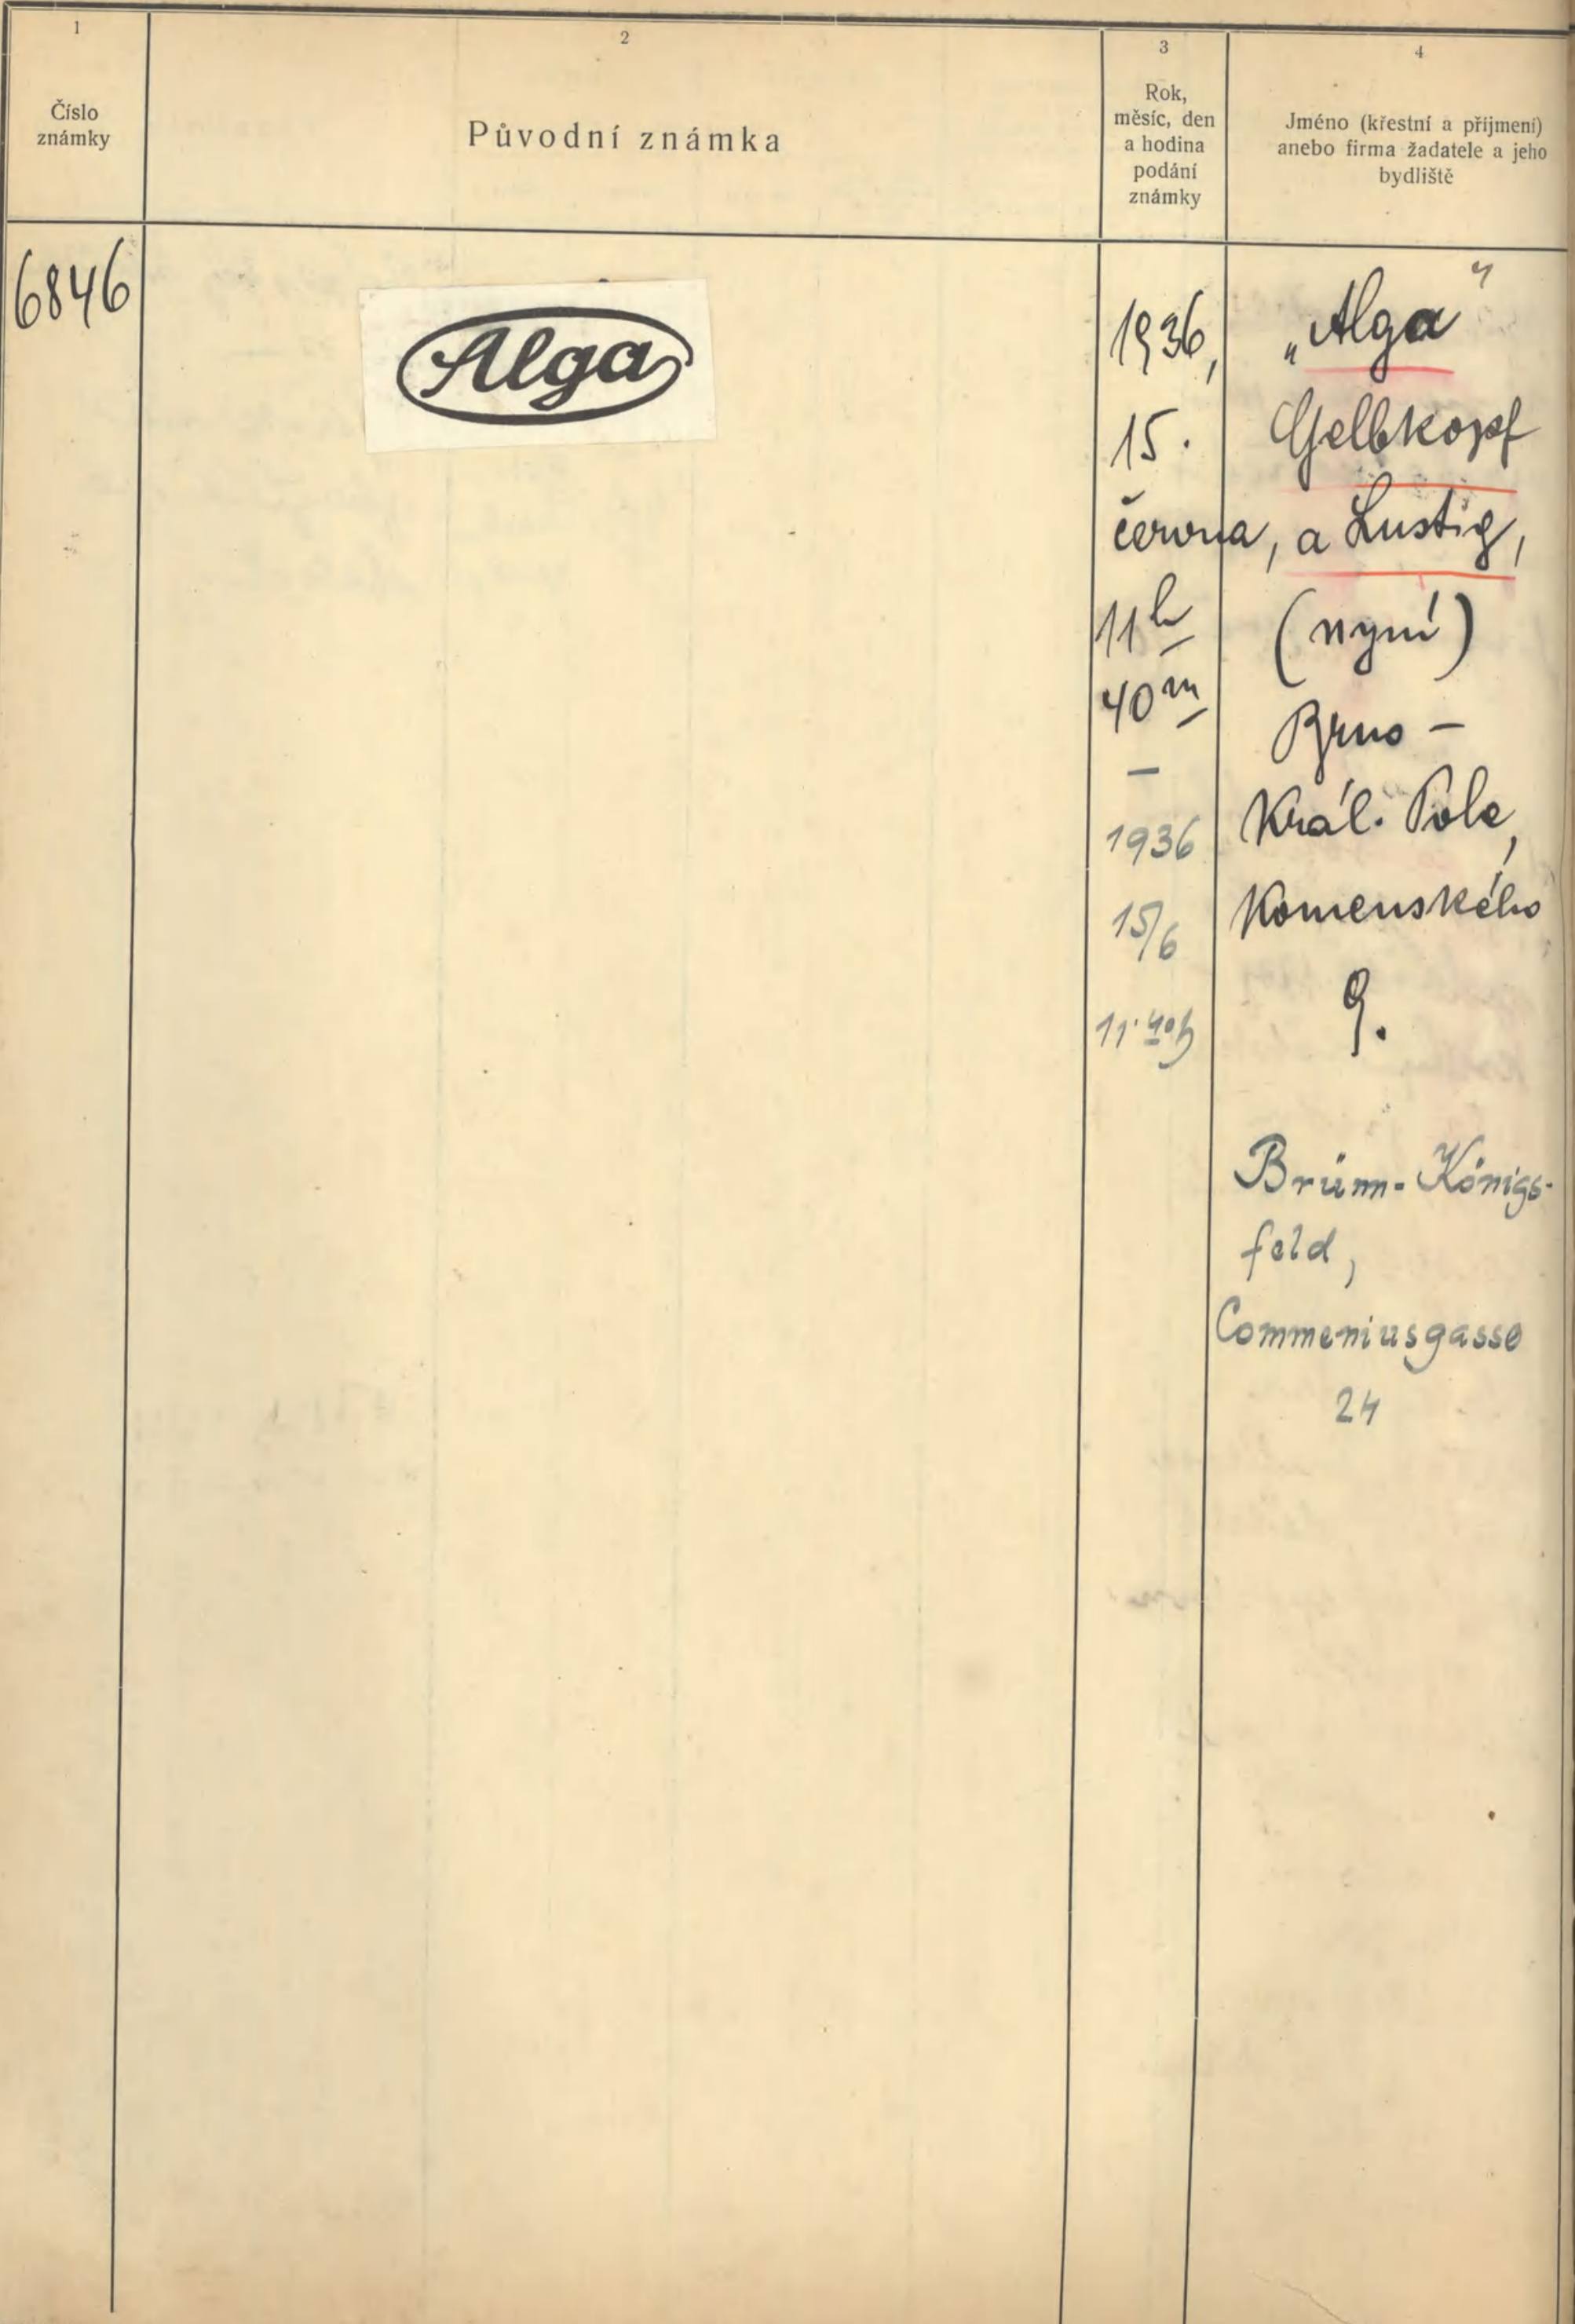 1
Číslo
známky
2
Původní známka
3
Rok,
měsíc, den
a hodina
podání
známky
4
Jméno (křestní a příjmení)
anebo firma žadatele a jeho
bydliště
6846
Alga
1936,
15.
června,
11h
40m
—
1936
15/6
11·40h
„Alga"
Gelbkopf
a Lustig,
(nyní)
Brno –
Král. Pole,
Komenského
9.
Brünn-Königs-
feld,
Commeniusgasse
24